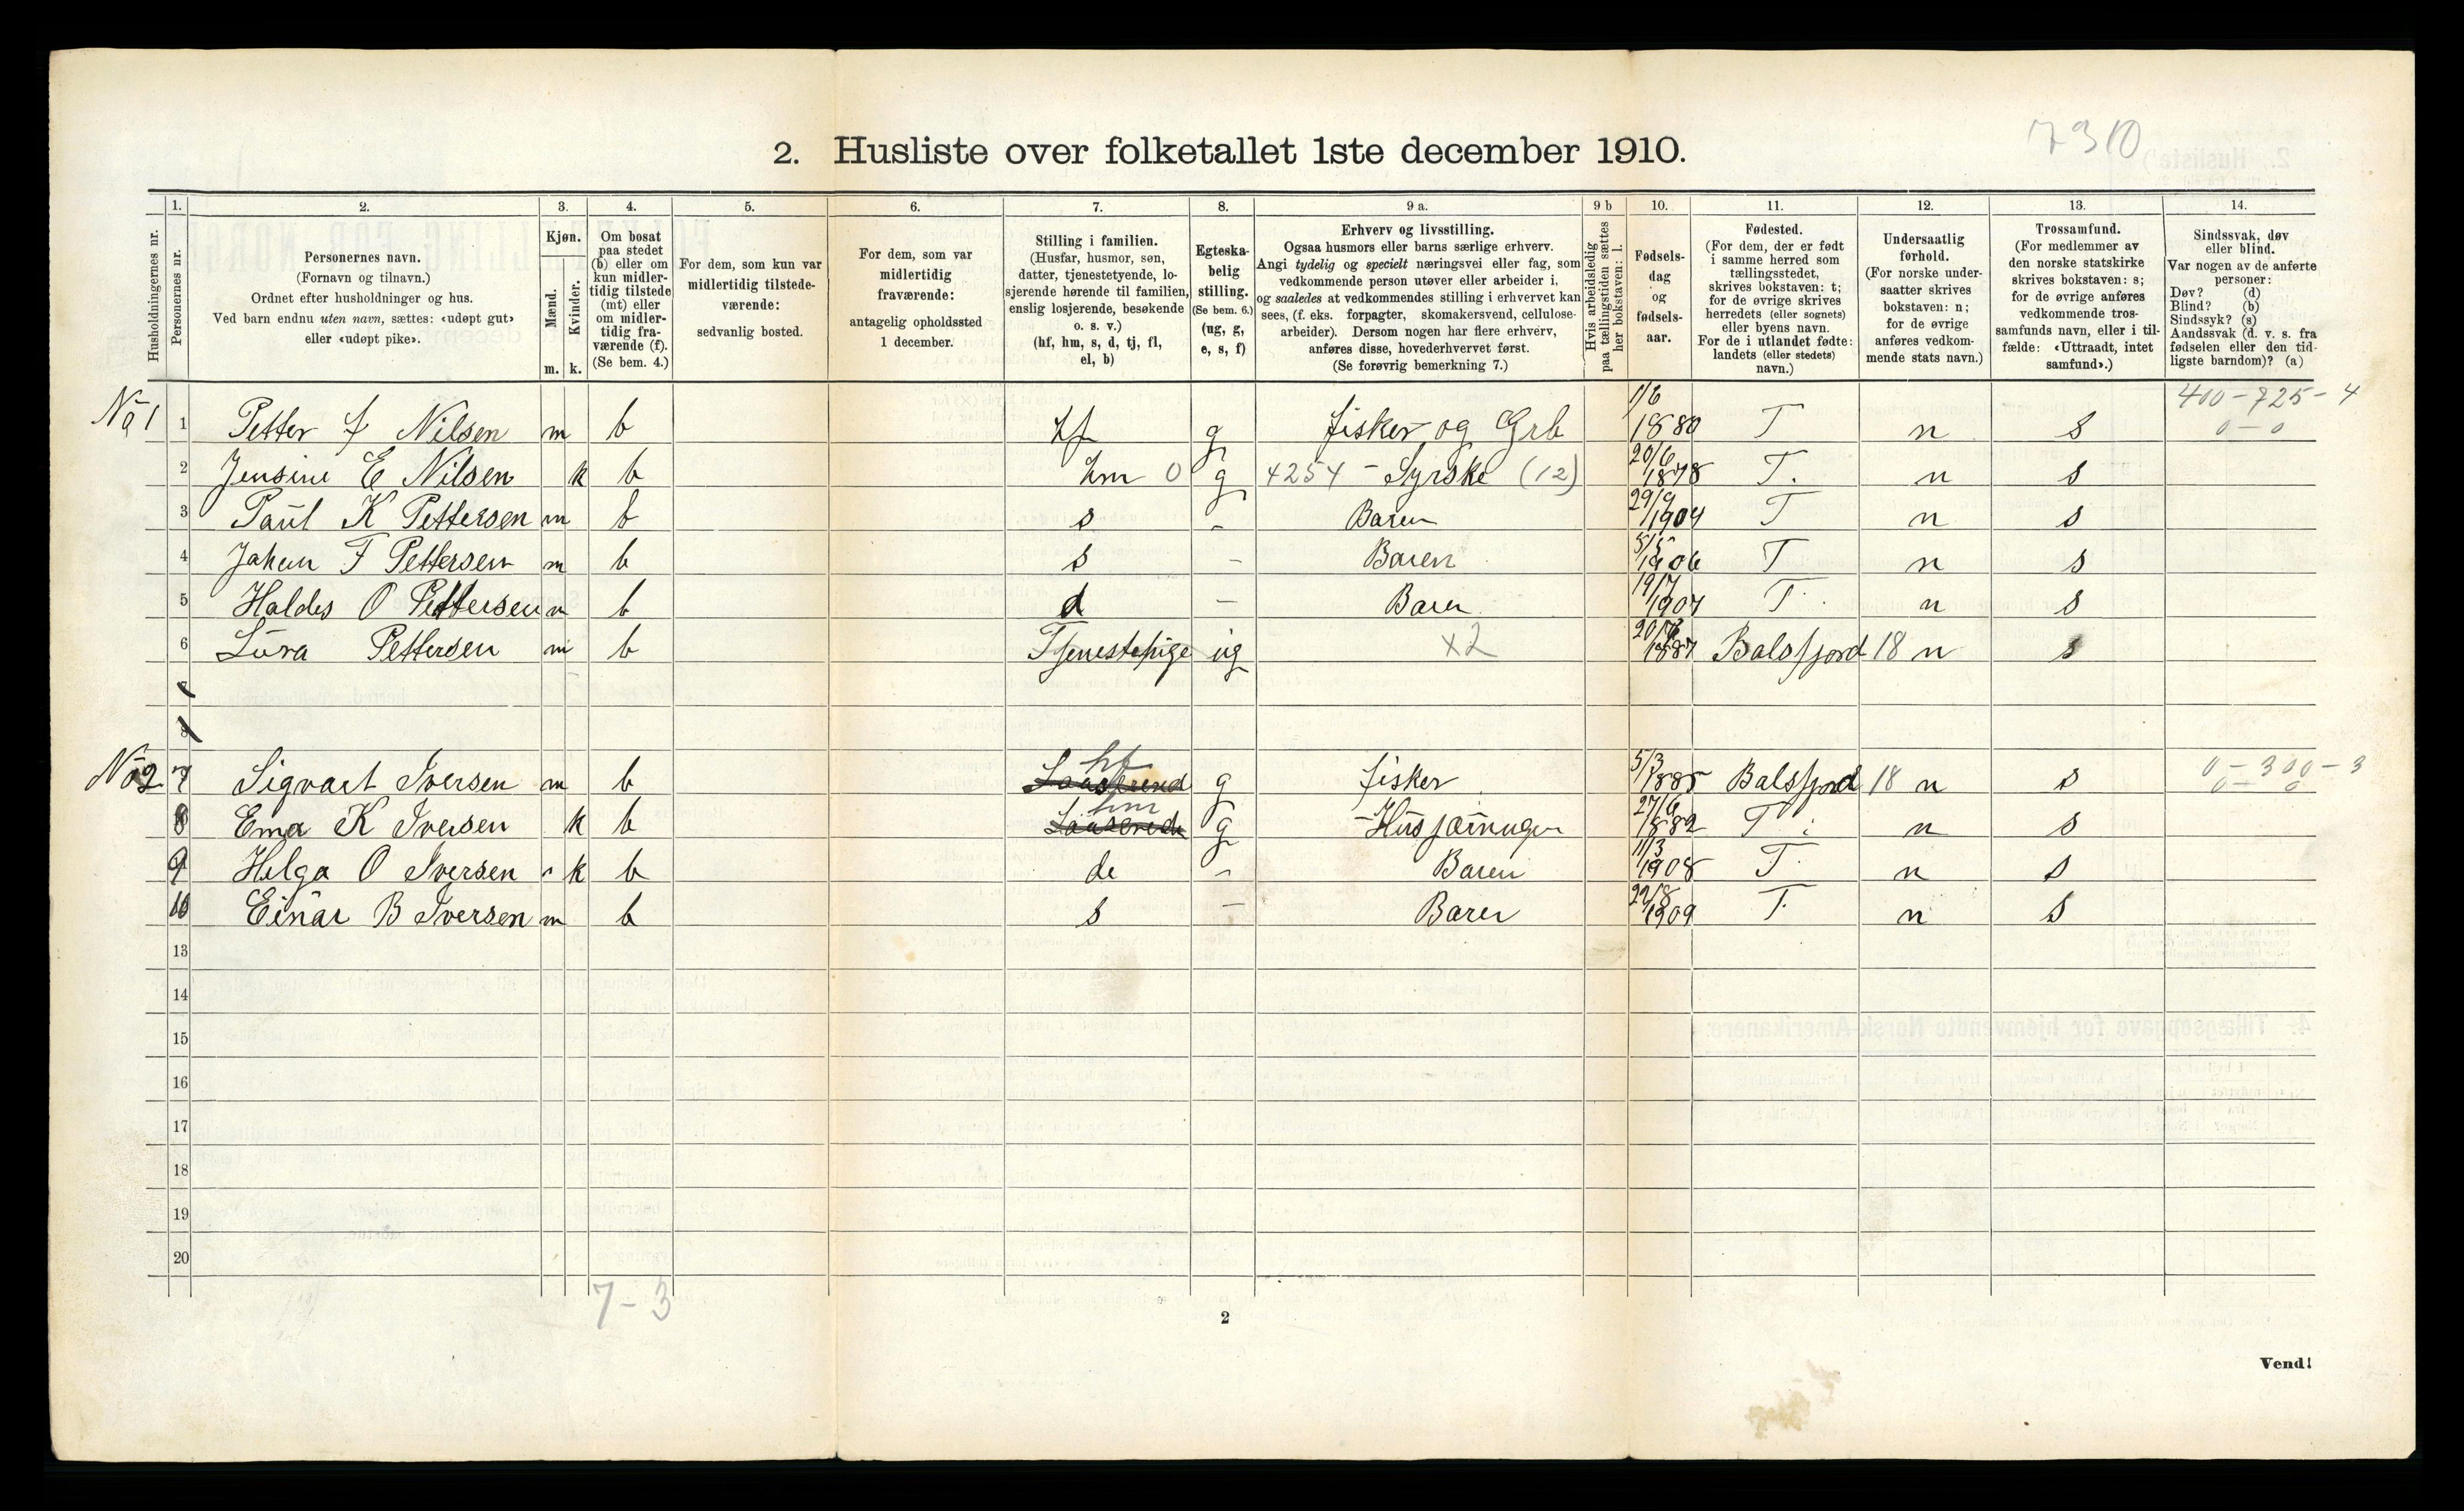 7310
2. Husliste over folketallet 1ste december 1910.
Husholdningernes nr.
1. Personernes nr.
2. Personernes navn.
(Fornavn og tilnavn.)
Ordnet efter husholdninger og hus.
Ved barn endnu uten navn, sættes: «udøpt gut»
eller «udøpt pike».
3. Kjøn.
Mænd. m.
Kvinder. k.
4. Om bosat
paa stedet
(b) eller om
kun midler-
tidig tilstede
(mt) eller
om midler-
tidig fra-
værende (f).
(Se bem. 4.)
5. For dem, som kun var
midlertidig tilstede-
værende:
sedvanlig bosted.
6. For dem, som var
midlertidig
fraværende:
antagelig opholdssted
1 december.
7. Stilling i familien.
(Husfar, husmor, søn,
datter, tjenestetyende, lo-
sjerende hørende til familien,
enslig losjerende, besøkende
o. s. v.)
(hf, hm, s, d, tj, fl,
el, b)
8. Egteska-
belig
stilling.
(Se bem. 6.)
(ug, g,
e, s, f)
9 a. Erhverv og livsstilling.
Ogsaa husmors eller barns særlige erhverv.
Angi tydelig og specielt næringsvei eller fag, som
vedkommende person utøver eller arbeider i,
og saaledes at vedkommendes stilling i erhvervet kan
sees, (f. eks. forpagter, skomakersvend, cellulose-
arbeider). Dersom nogen har flere erhverv,
anføres disse, hovederhvervet først.
(Se forøvrig bemerkning 7.)
9 b Hvis arbeidsledig
paa tællingstiden sættes
her bokstaven: l.
10. Fødsels-
dag
og
fødsels-
aar.
11. Fødested.
(For dem, der er født
i samme herred som
tællingsstedet,
skrives bokstaven: t;
for de øvrige skrives
herredets (eller sognets)
eller byens navn.
For de i utlandet fødte:
landets (eller stedets)
navn.)
12. Undersaatlig
forhold.
(For norske under-
saatter skrives
bokstaven: n;
for de øvrige
anføres vedkom-
mende stats navn.)
13. Trossamfund.
(For medlemmer av
den norske statskirke
skrives bokstaven: s;
for de øvrige anføres
vedkommende tros-
samfunds navn, eller i til-
fælde: «Uttraadt, intet
samfund».)
14. Sindssvak, døv
eller blind.
Var nogen av de anførte
personer:
Døv? (d)
Blind? (b)
Sindssyk? (s)
Aandssvak (d. v. s. fra
fødselen eller den tid-
ligste barndom)? (a)
No 1 1 Petter J Nilsen m b hf g fisker og Grb 1/6 1880 T n s 400-725-4 0-0
2 Jensine E Nilsen k b hm 0 g 4254 - Syrske (12) 20/6 1878 T. n s
3 Paul K Pettersen m b s - Baren 29/9 1904 T n s
4 Johan F Pettersen m b s - Baren 5/5 1906 T n s
5 Haldis O Pettersen b d - Baren 19/7 1907 T n s
6 Lūra Pettersen m b Tjenestepige ug x2 1887 Balsfjord 18 n s
7
8
No 2 7 Sigvart Iversen m b hf g fisker 5/3 1885 Balsfjord 18 n s 0-300-3 0-0
8 Ema K Iversen k b hm g 27/6 1882 T n s
9 Helga O Iversen k b de - Baren 11/3 1908 T n s
10 Einar B Iversen m b s - Baren 22/8 1909 T n s
13
14
15
16
17
18
19
20
7-3
2
Vend!